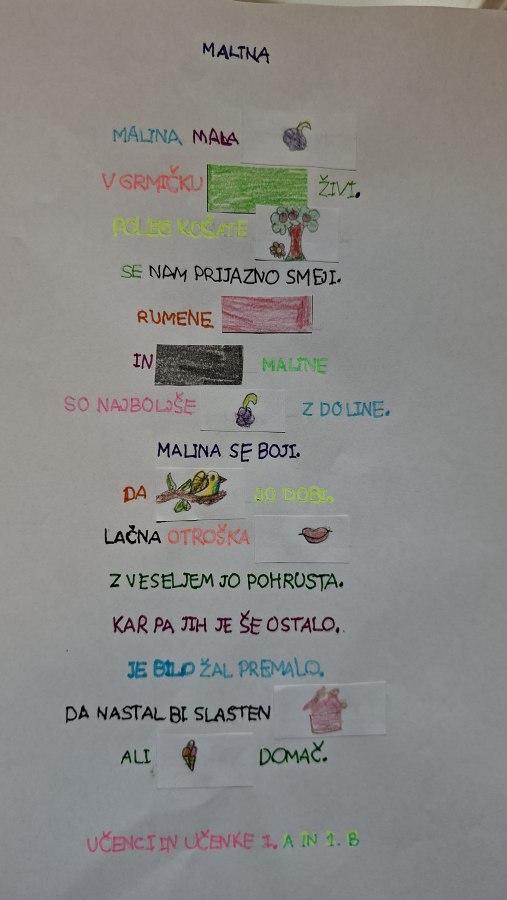 MALINA
MALINA MALA
V GRMIČKU ŽIVI.
POLEG KOŠATE
SE NAM PRIJAZNO SMEJI.
RUMENE
IN MALINE
SO NAJBOLJŠE Z DOLINE.
MALINA SE BOJI.
DA JO DOBI.
LAČNA OTROŠKA
Z VESELJEM JO POHRUSTA.
KAR PA JIH JE ŠE OSTALO.
JE BILO ŽAL PREMALO.
DA NASTAL BI SLASTEN
ALI DOMAČ.
UČENCI IN UČENKE 1. A IN 1. B